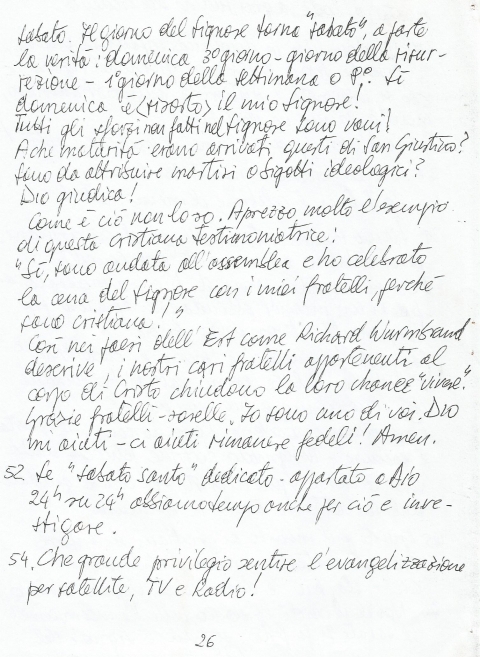 sabato. Il giorno del Signore torna "sabato", a parte
la verità: domenica 3° giorno - giorno della risur-
rezione - 1° giorno della settimana o P.° Sì
domenica è (risorto) il mio Signore!
Tutti gli sforzi non fatti nel Signore sono vani!
A che maturità erano arrivati questi di San Giustino?
Sono da attribuire martiri o bigotti ideologici?
Dio giudica!
Come è ciò non lo so. Aprezzo molto l'esempio
di questa cristiana testimoniatrice:
"Sì, sono andata all'assemblea e ho celebrato
la cena del Signore con i miei fratelli, perché
sono cristiana!"
Così nei paesi dell'Est come Richard Wurmbrand
descrive, i nostri cari fratelli appartenenti al
corpo di Cristo chiudono la loro chance "vivere".
Grazie fratelli - sorelle. Io sono uno di voi. Dio
mi aiuti - ci aiuti rimanere fedeli! Amen.
52. Se "sabato santo" dedicato - appartato a Dio
24h su 24h abbiamo tempo anche per ciò e inve-
stigare.
54. Che grande privilegio sentire l'evangelizzazione
per satellite, TV e Radio!
26